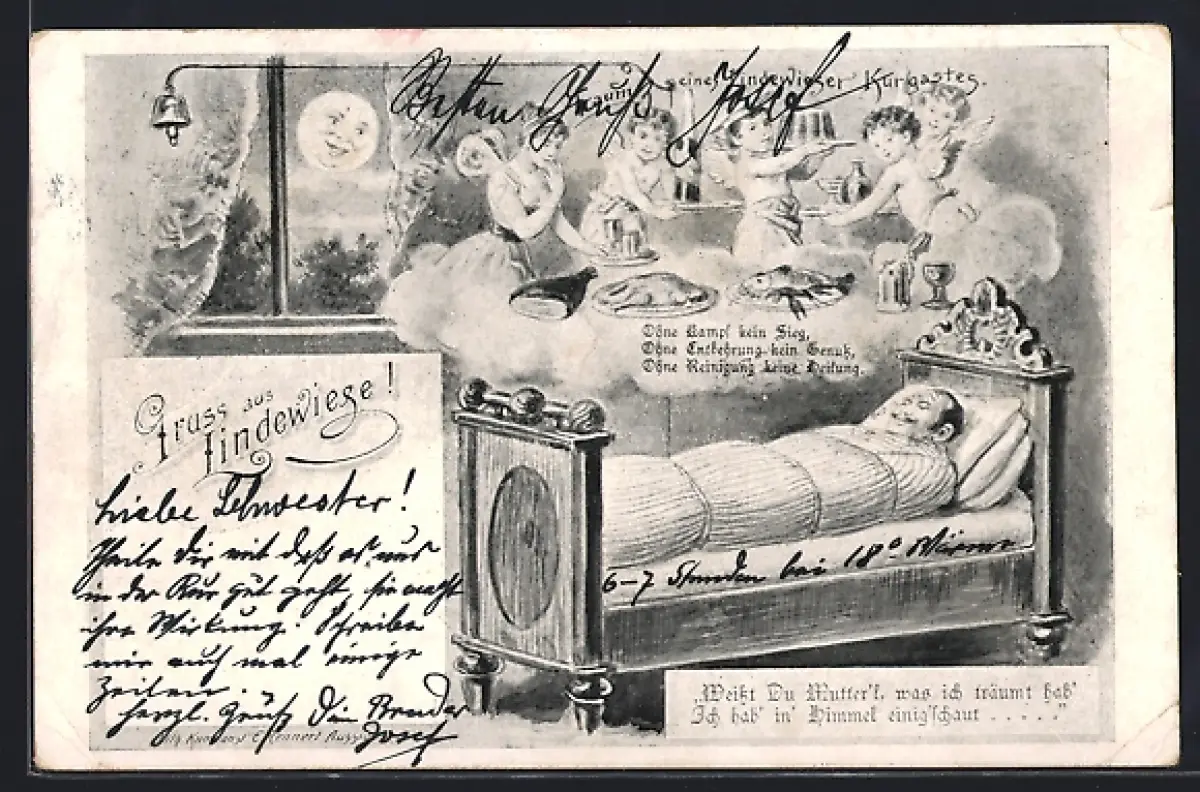 Besten Gruß Josef
eines Lindewieser Kurgastes.
Ohne Kampf kein Sieg,
Ohne Entbehrung kein Genuß,
Ohne Reinigung keine Heilung.
Gruss aus
Lindewiese!
Liebe Schwester!
Theile Dir mit daß es uns
in der Kur gut geht, sie macht
ihre Wirkung. Schreibe
mir auch mal einige
Zeilen.
herzl. Gruß Dein Bruder
Josef
6-7 Stunden bei 18° Wärme
„Weißt Du Mutter'l, was ich träumt hab'
Ich hab' in' Himmel einig'schaut . . . . ."